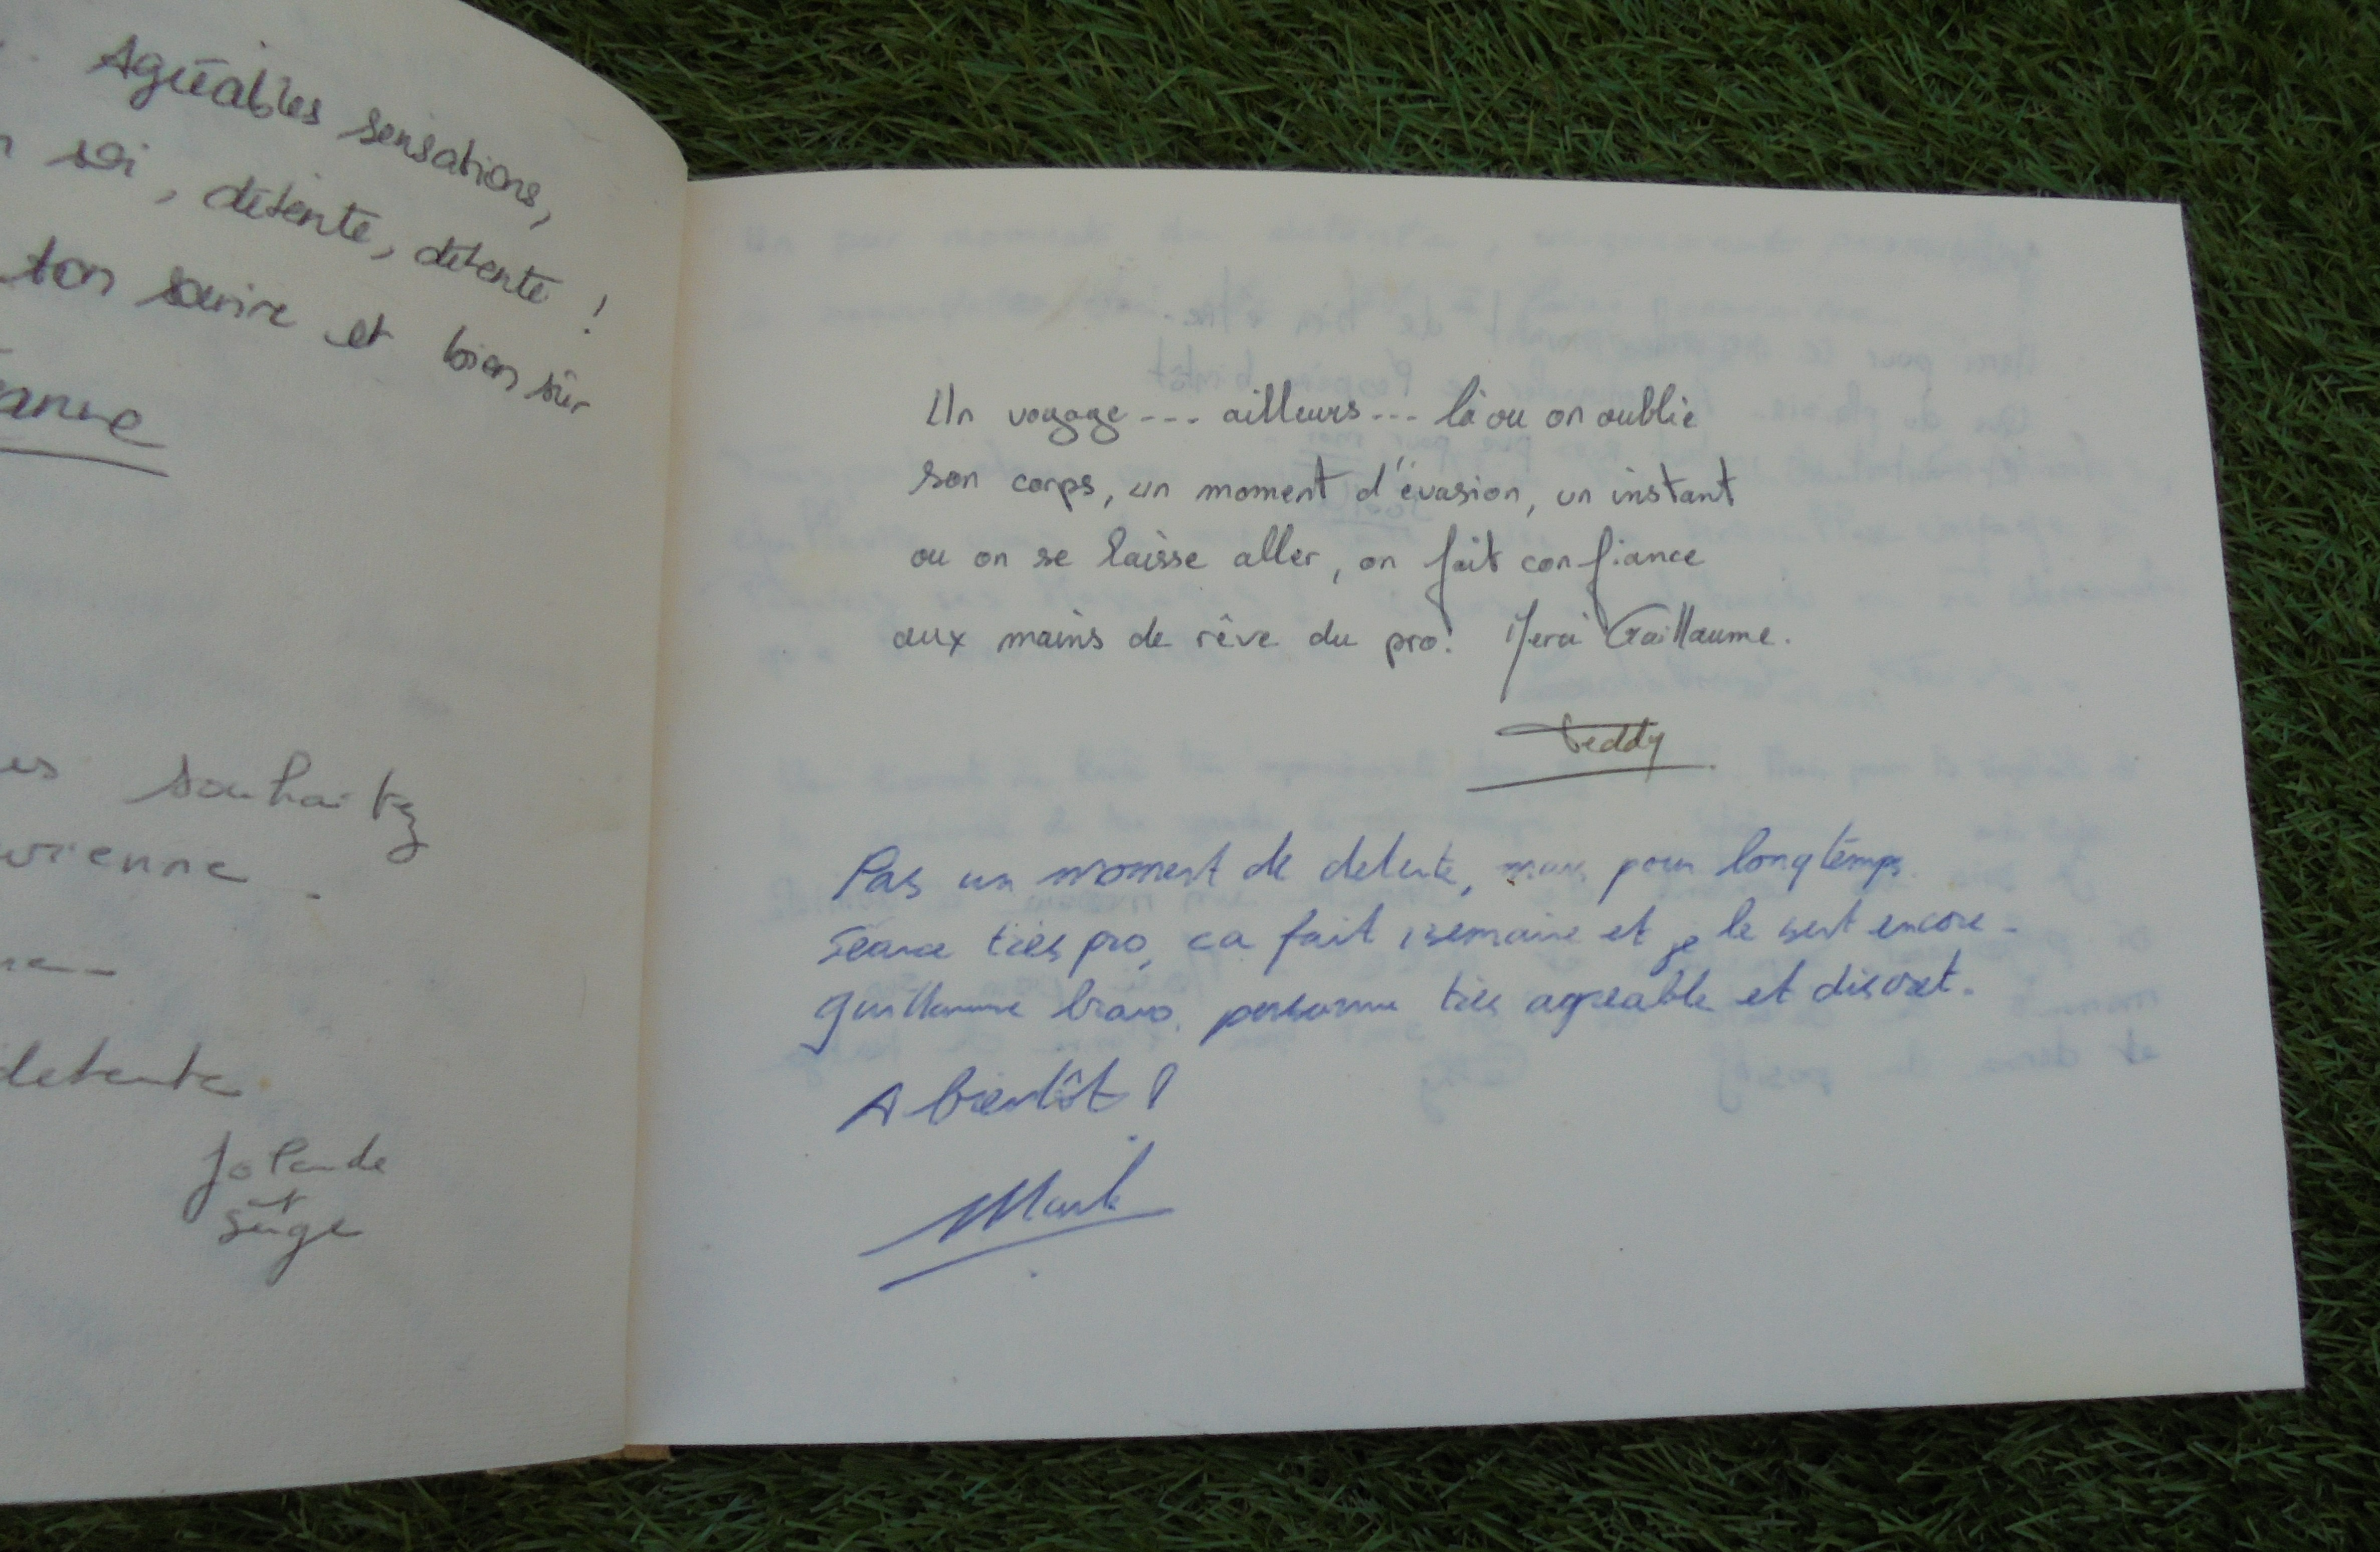 Agréables sensations,
soi, détente, détente !
ton sourire et bien sûr
souhaitez
vienne.
detente
Jolande
et
Serge
Un voyage --- ailleurs --- là ou on oublie
son corps, un moment d'évasion, un instant
ou on se laisse aller, on fait confiance
aux mains de rêve du pro! Merci Guillaume.
Teddy
Pas un moment de detente, mais pour longtemps.
Seance très pro, ca fait 1 semaine et je le sent encore.
Guillaume bravo. personne très agreable et discret.
A bientôt !
Mark